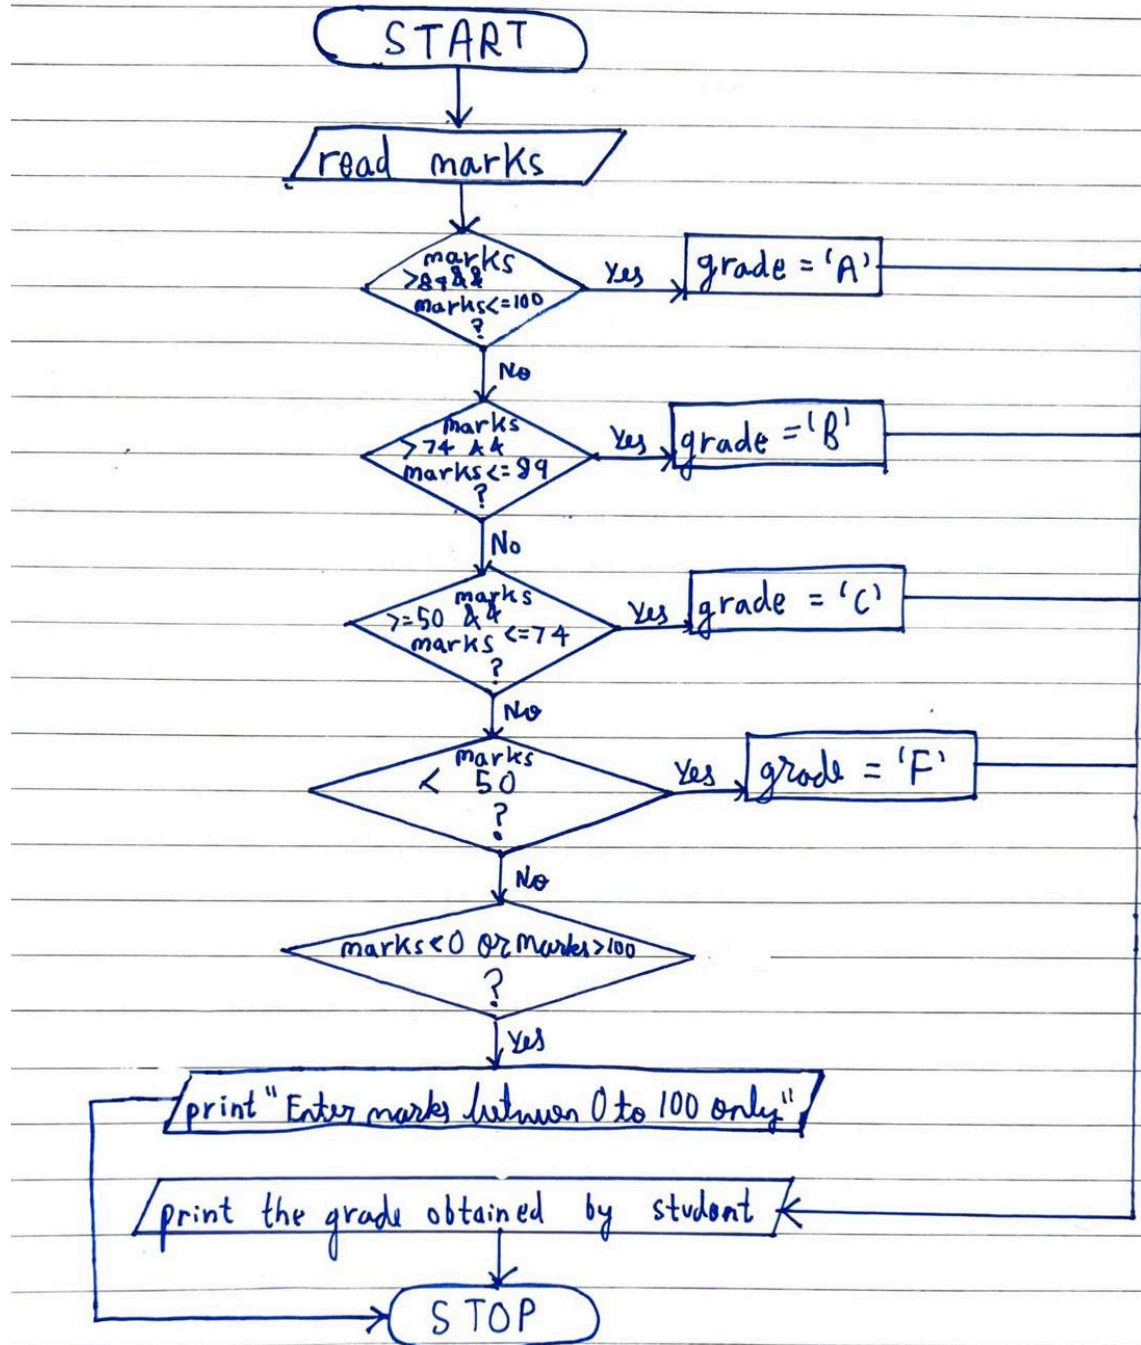 START
read marks
marks
>89 &&
marks<=100
?
Yes
grade = 'A'
No
marks
>74 &&
marks<=89
?
Yes
grade = 'B'
No
marks
>=50 &&
marks <=74
?
Yes
grade = 'C'
No
marks
< 50
?
Yes
grade = 'F'
No
marks<0 or Marks>100
?
Yes
print "Enter marks between 0 to 100 only"
print the grade obtained by student
STOP